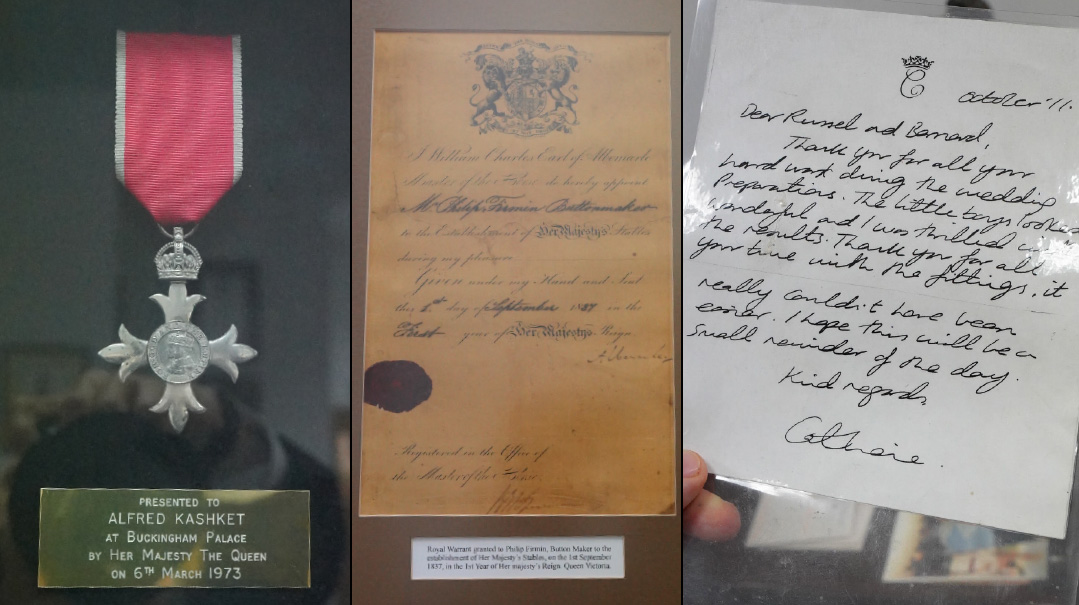 PRESENTED TO
ALFRED KASHKET
AT BUCKINGHAM PALACE
BY HER MAJESTY THE QUEEN
ON 6TH MARCH 1973
I William Charles Earl of Albemarle
Master of the Horse do hereby appoint
Mr Philip Firmin Buttonmaker
to the Establishment of Her Majesty's Stables
during my pleasure
Given under my Hand and Seal
this 1st day of September 1837 in the
First year of Her Majesty's Reign
Albemarle
Registered in the Office of
the Master of the Horse
Royal Warrant granted to Philip Firmin, Button Maker to the
establishment of Her Majesty's Stables, on the 1st September
1837, in the 1st Year of Her majesty's Reign. Queen Victoria.
C
October '11.
Dear Russel and Barnard,
Thank you for all your
hard work during the wedding
preparations. The little boys looked
wonderful and I was thrilled
the results. Thank you for all
your time with the fittings, it
really couldn't have been
easier. I hope this will be a
small reminder of the day.
Kind regards,
Catherine.